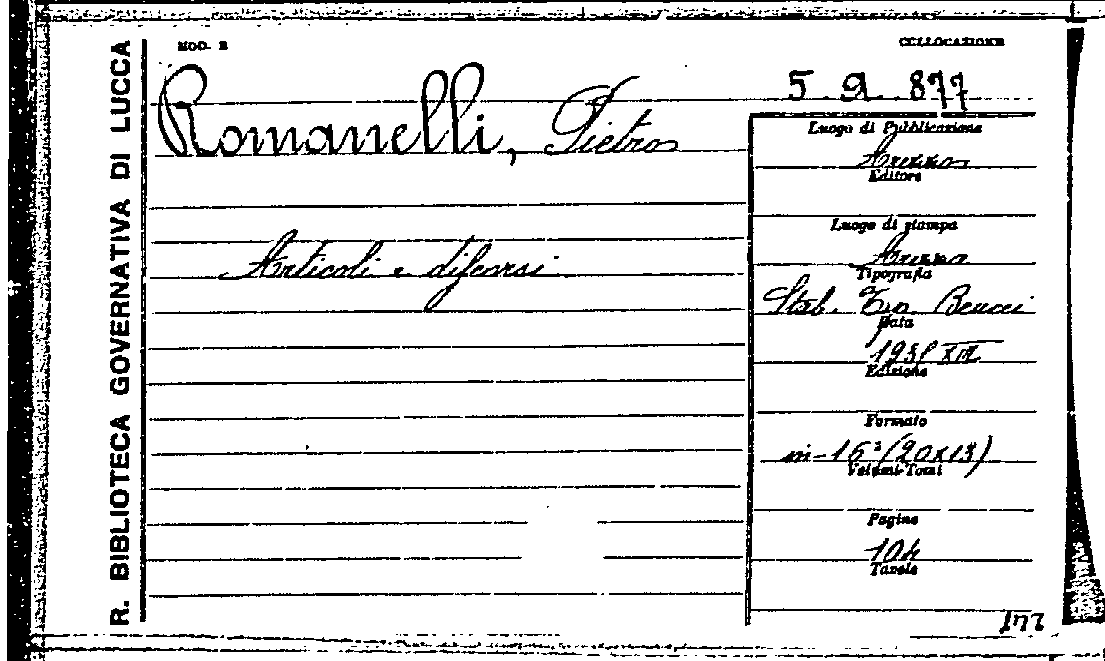 R. BIBLIOTECA GOVERNATIVA DI LUCCA
MOD. B
COLLOCAZIONE
5. 9. 877
Romanelli, Pietro
Articoli e discorsi
Luogo di Pubblicazione
Arezzo
Editore
Luogo di stampa
Arezzo
Tipografia
Stab. Tip. Beucci
Data
XIII
Edizione
Formato
in-16° (20x13)
Volumi-Tomi
Pagine
104
Tavole